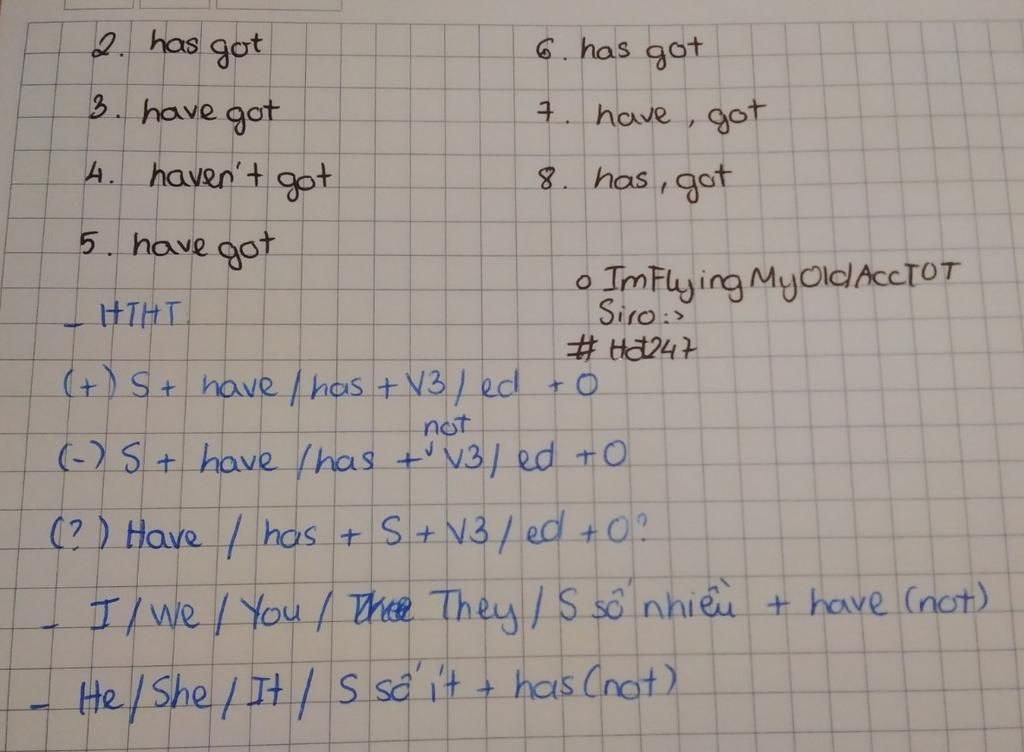 2. has got
3. have got
4. haven't got
5. have got
6. has got
7. have, got
8. has, got
o ImFlyingMyOldAccTOT
Siro:>
# Hd247
- HTHT
(+) S + have / has + V3 / ed + O
(-) S + have / has + not V3 / ed + O
(?) Have / has + S + V3 / ed + O?
- I / We / You / They / S số nhiều + have (not)
- He / She / It / S số ít + has (not)